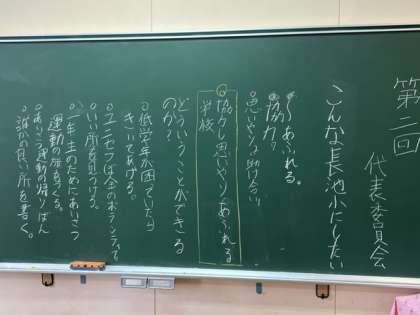 第二回
代表委員会
こんな長池小にしたい
あふれる。
協力?
思いやり、助け合い。
協力し思いやりあふれる
学校
どういうことができる
のか?
○低学年が困っていたら
きいてあげる。
○ユニセフは全のボランティアで
○いい所を見つける。
○一年生のためにあいさつ
運動の旗をつくる。
○あいさつ運動の帰りばん
○誰かの良い所を書く。